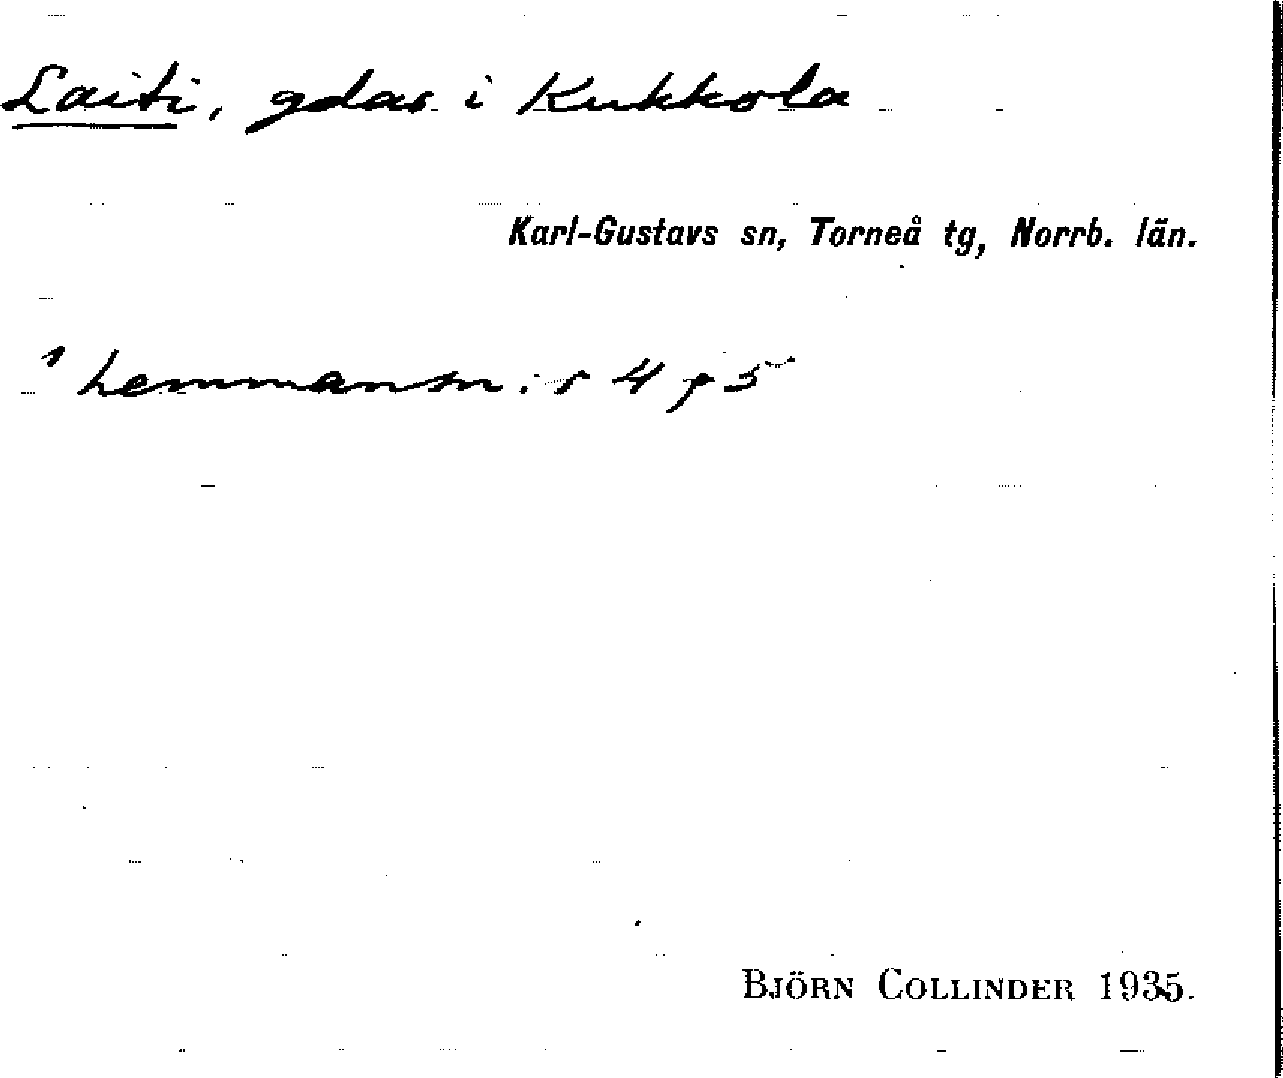 Laiti, gdar i Kukkola
Karl-Gustavs sn, Torneå tg, Norrb. län.
hemmansn:r 4 o 5
BJÖRN COLLINDER 1935.